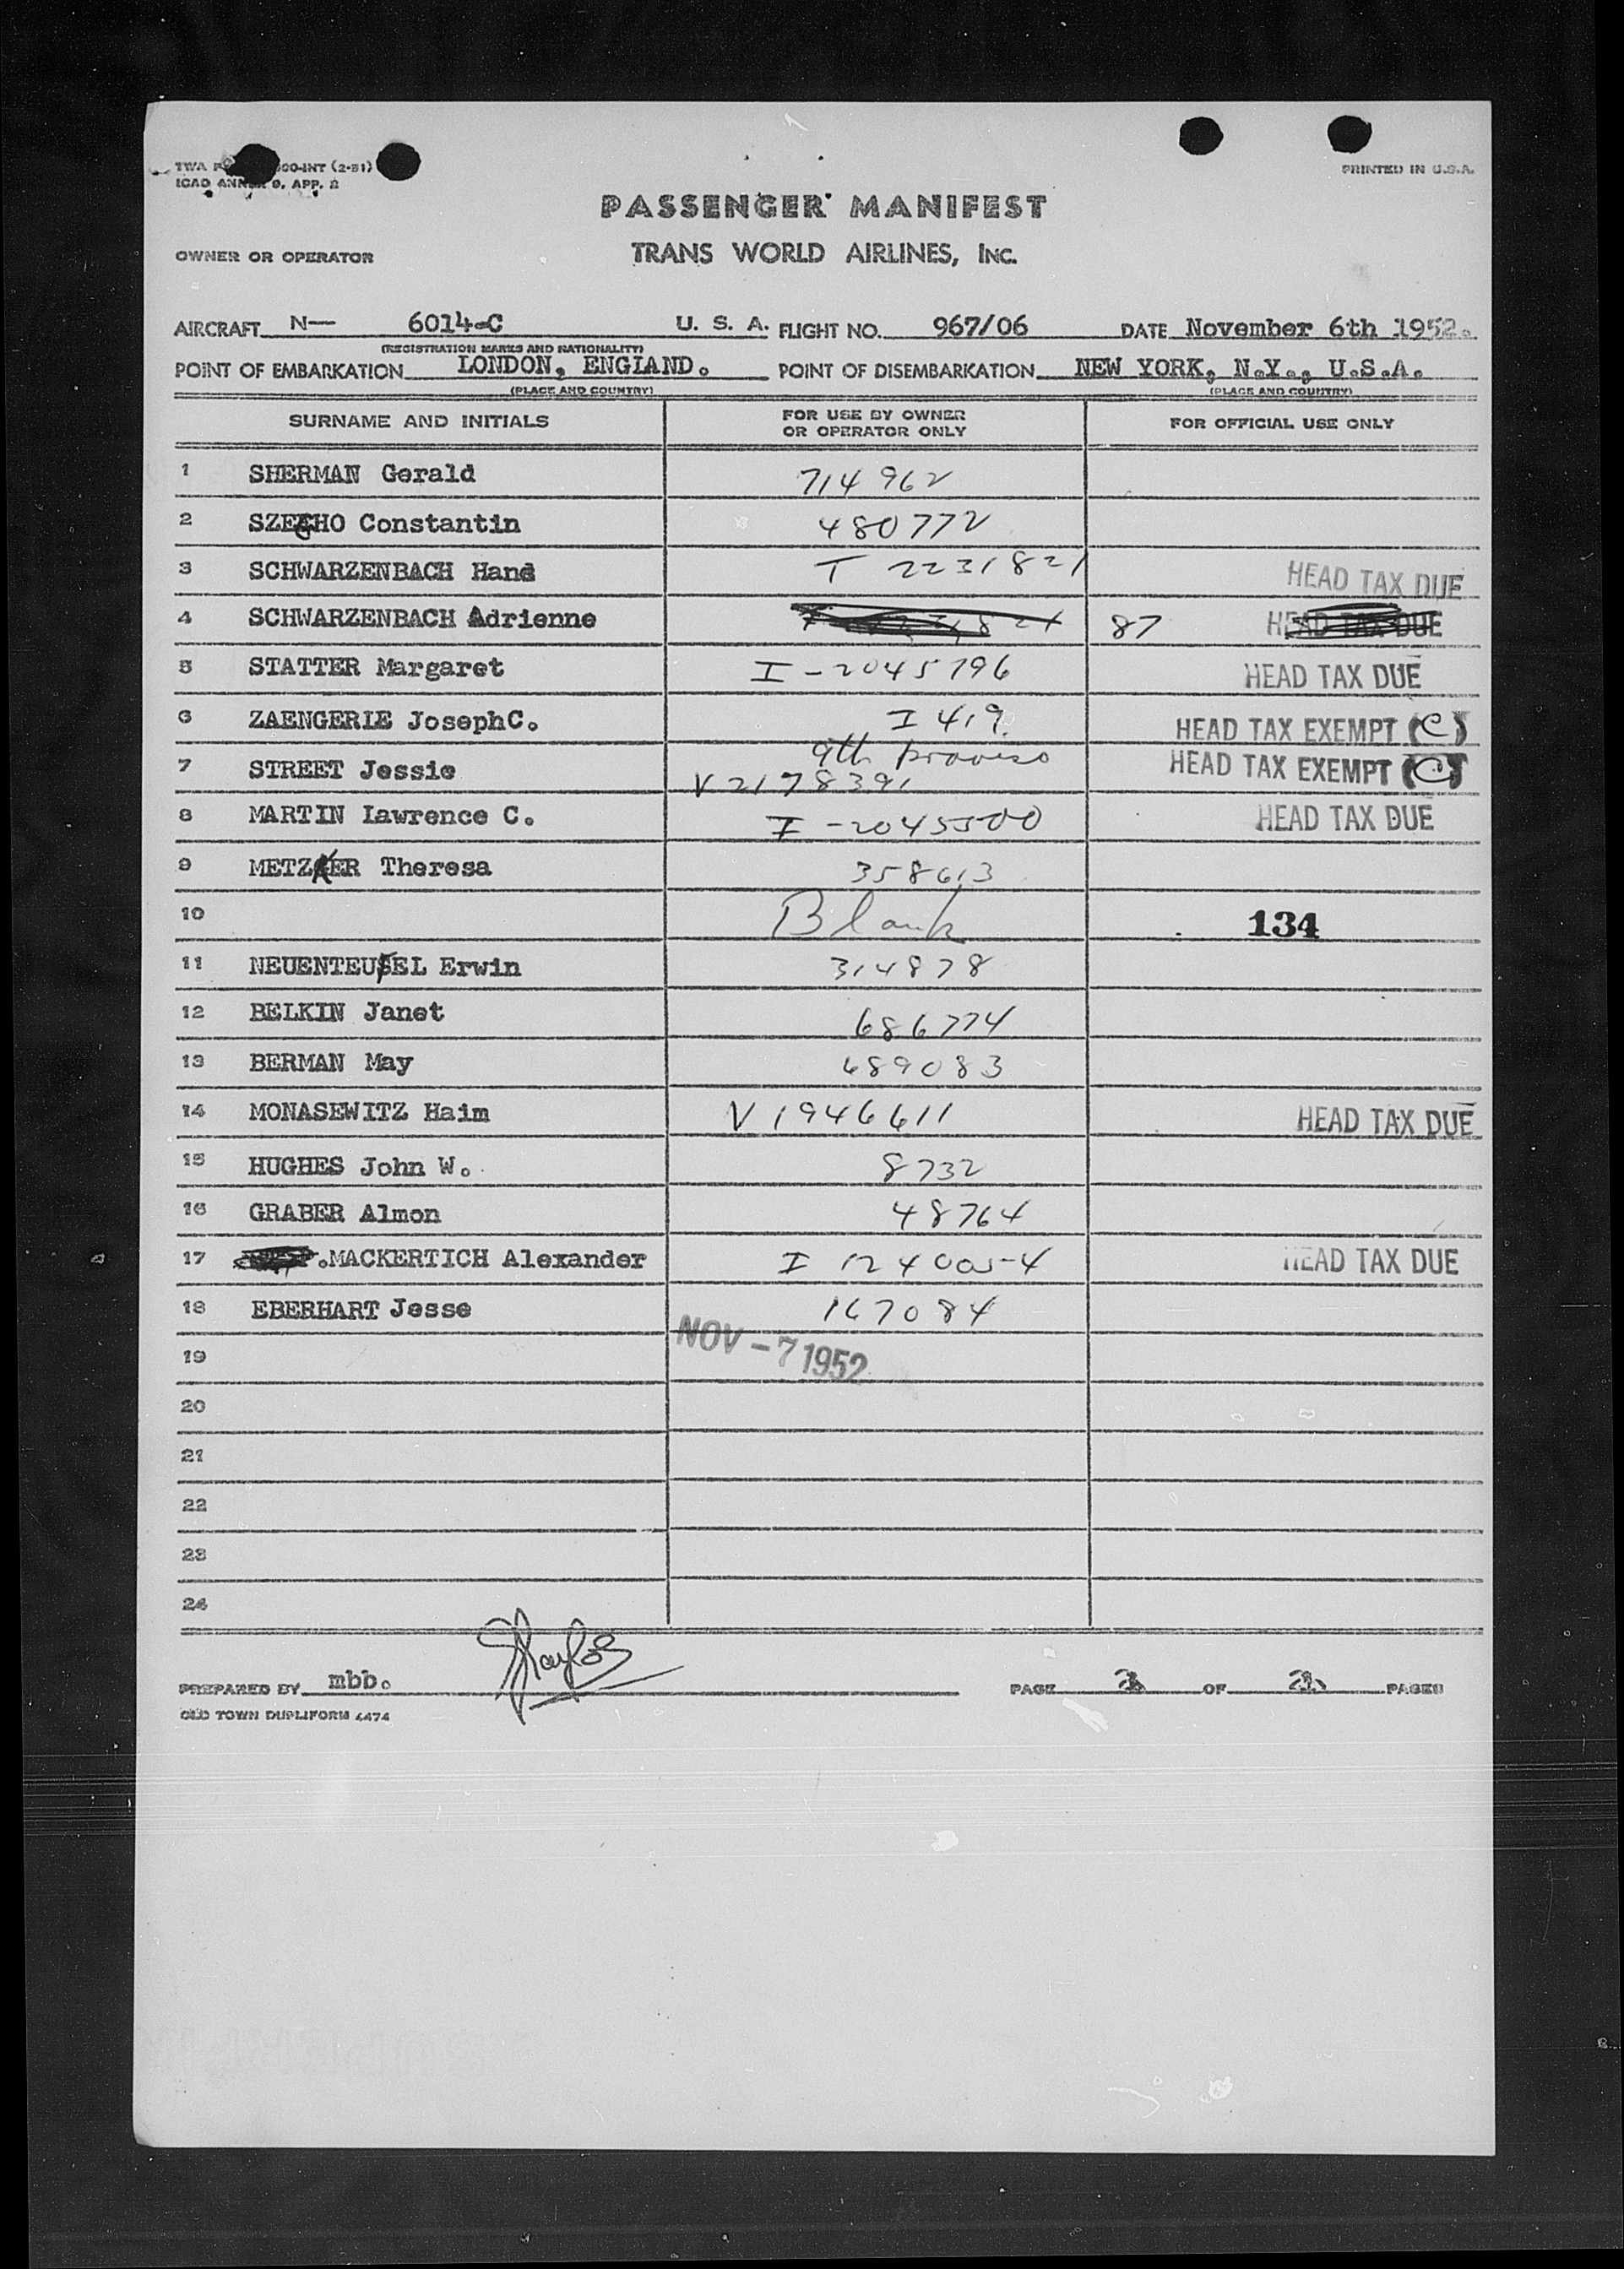 PRINTED IN U.S.A.
TWA 00-INT (2-51)
ICAO ANNEX 9, APP. 2
PASSENGER MANIFEST
OWNER OR OPERATOR TRANS WORLD AIRLINES, INC.
AIRCRAFT N— 6014-C U. S. A. FLIGHT NO. 967/06 DATE November 6th 1952.
(REGISTRATION MARKS AND NATIONALITY)
POINT OF EMBARKATION LONDON, ENGLAND. POINT OF DISEMBARKATION NEW YORK, N.Y., U.S.A.
(PLACE AND COUNTRY) (PLACE AND COUNTRY)
SURNAME AND INITIALS FOR USE BY OWNER OR OPERATOR ONLY FOR OFFICIAL USE ONLY
1 SHERMAN Gerald 714962
2 SZECHO Constantin 480772
3 SCHWARZENBACH Hans T 2231821 HEAD TAX DUE
4 SCHWARZENBACH Adrienne 87 HEAD TAX DUE
5 STATTER Margaret I-2045796 HEAD TAX DUE
6 ZAENGERIE JosephC. I 419 HEAD TAX EXEMPT (C)
9th proviso
7 STREET Jessie V2178391 HEAD TAX EXEMPT (C)
8 MARTIN Lawrence C. I-2045500 HEAD TAX DUE
9 METZKER Theresa 358613
10 Blank 134
11 NEUENTEUFEL Erwin 314878
12 BELKIN Janet 686774
13 BERMAN May 689083
14 MONASEWITZ Haim V 1946611 HEAD TAX DUE
15 HUGHES John W. 8732
16 GRABER Almon 48764
17 .MACKERTICH Alexander I 124005-4 HEAD TAX DUE
18 EBERHART Jesse 167084
NOV -7 1952
19
20
21
22
23
24
PREPARED BY mbb. PAGE OF PAGES
OLD TOWN DUPLIFORM 4474